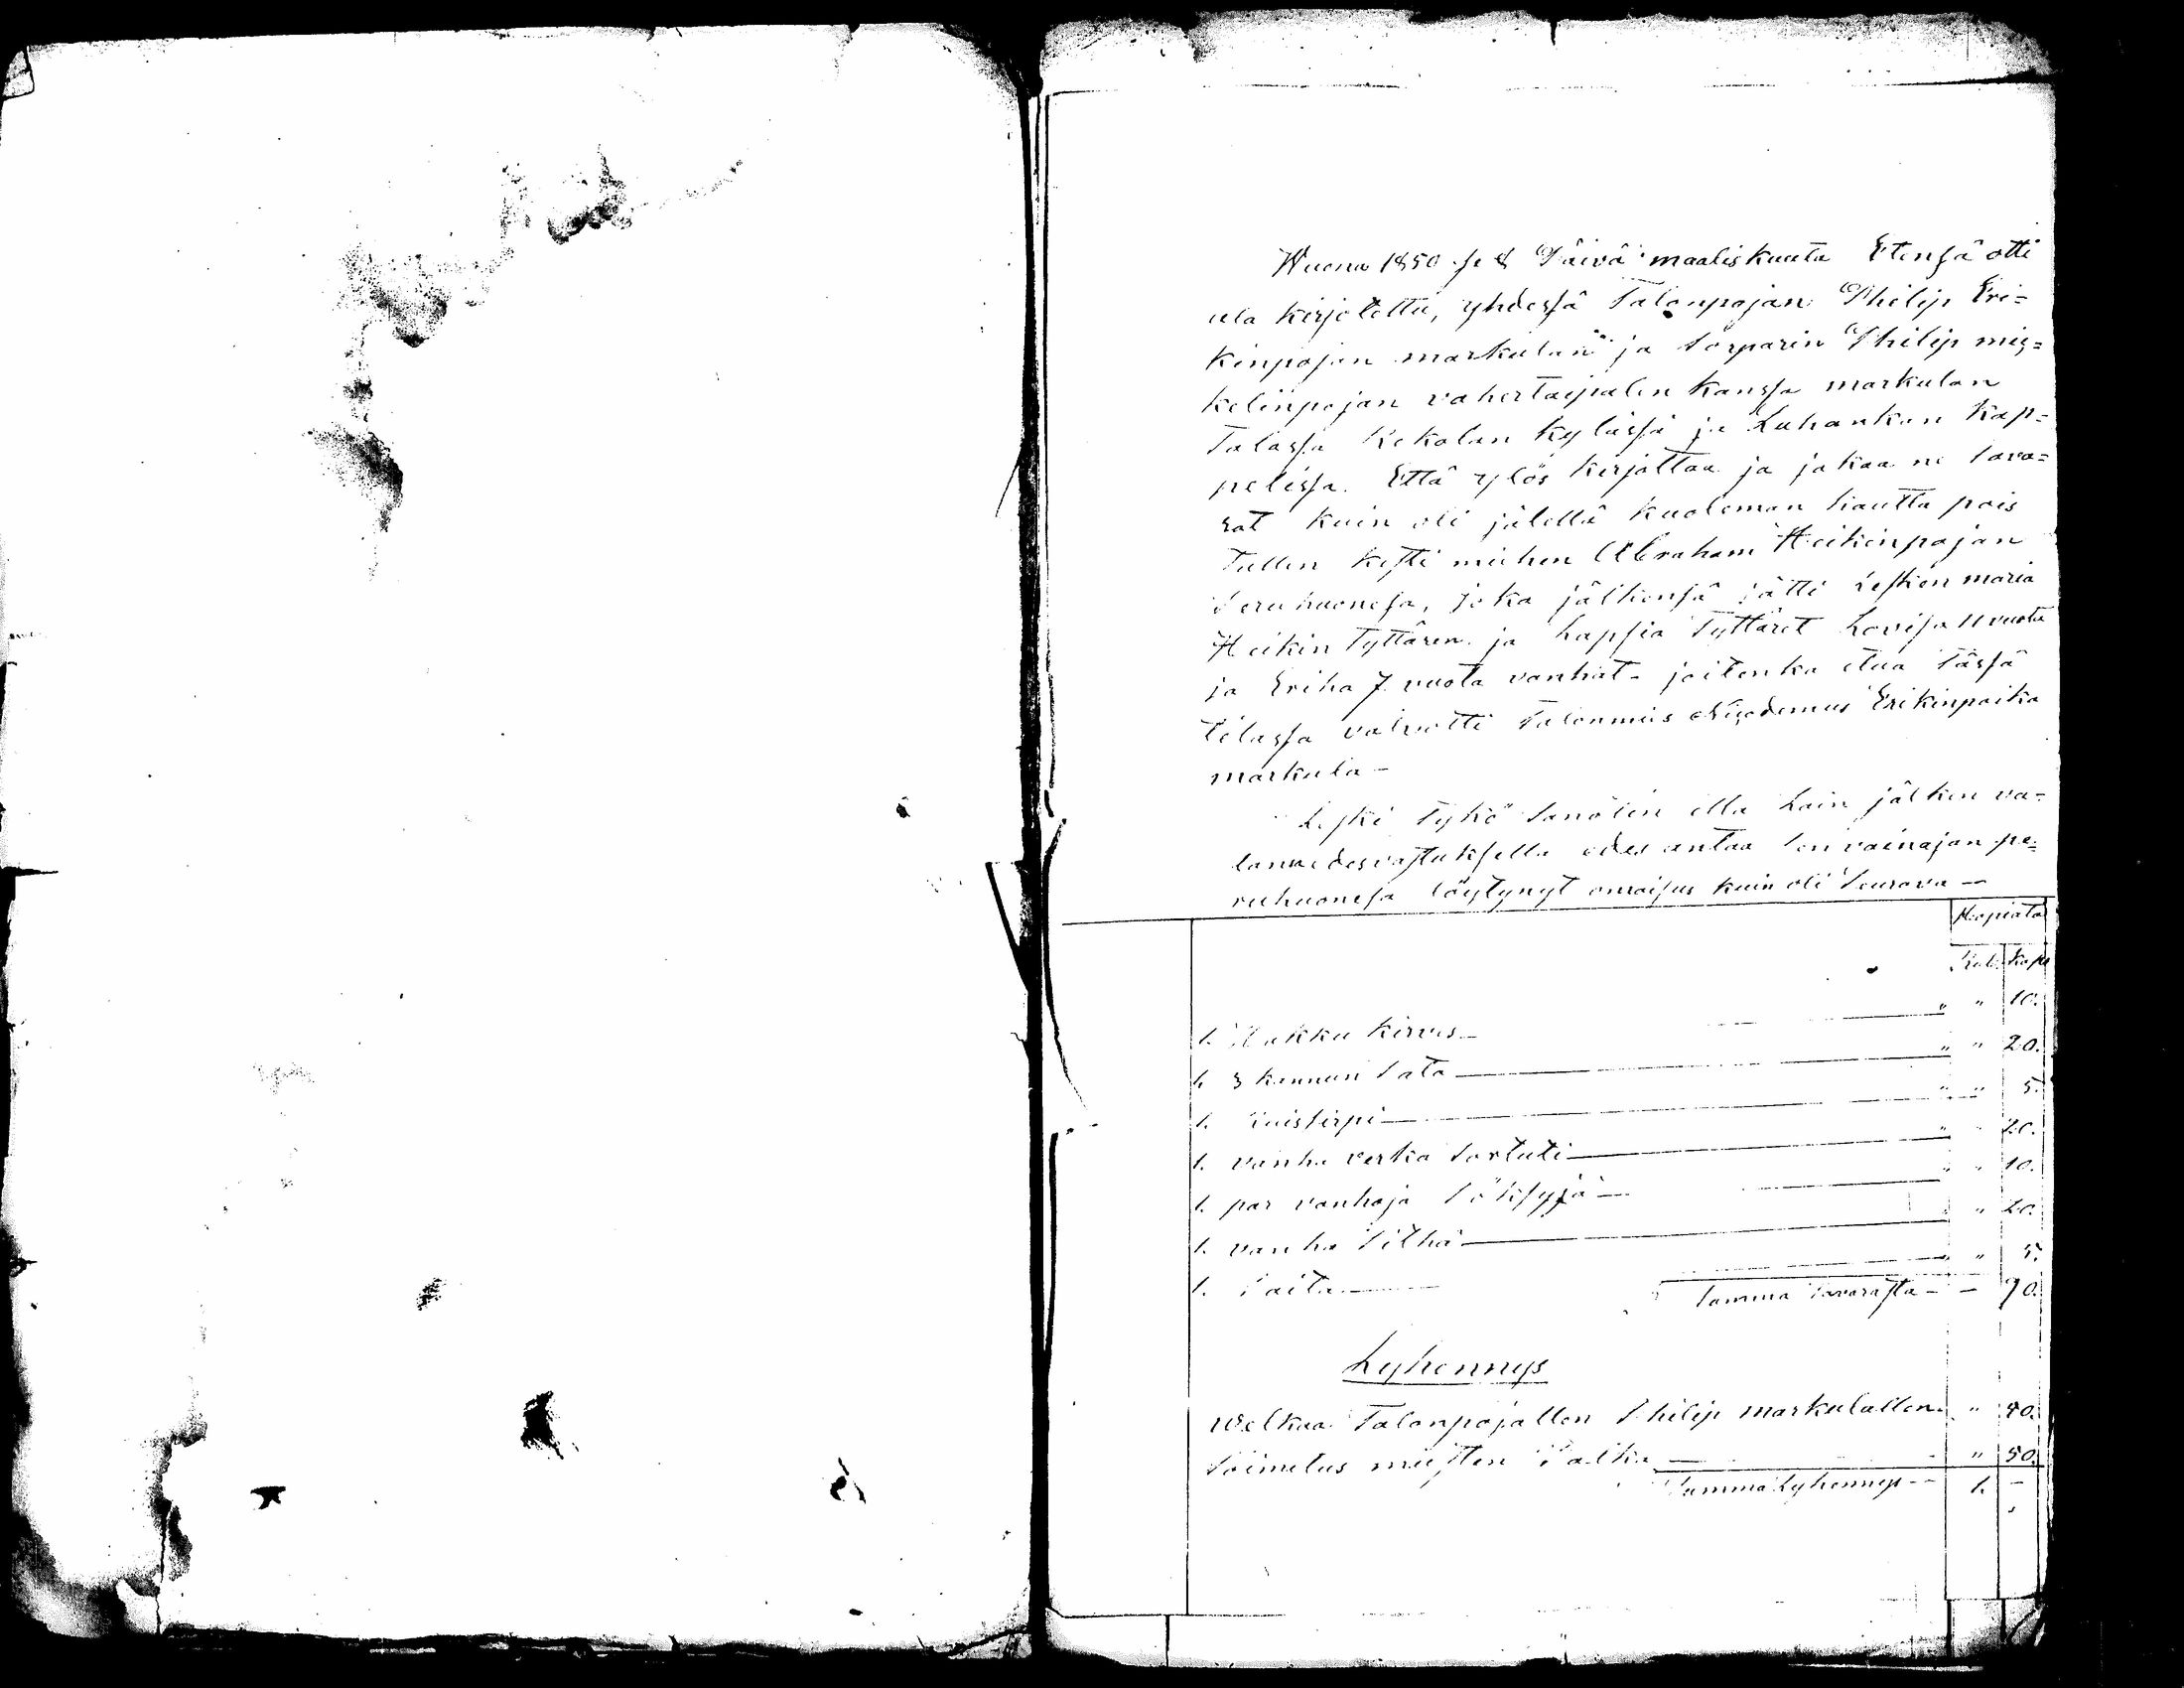 Wuona 1850 se 8 Päivä maaliskuuta Etensä otti
ala kirjotettu, yhdessä Talonpojan Philip Eri=
kinpojan markulan ja Torparin Philip mig=
kelinpojan vahertaipalen kanssa markulan
Talossa Kekolan kylässä ja Luhankan kap=
pelissa. Että ylös kirjottaa ja jakaa ne Tava=
rat kuin oli jälellä kuoleman kautta pois
Tullen kesti miehen Abraham Heikinpojan
Peruhuonesa, joka jälkensä jätti Lesken maria
Heikin Tyttären ja Lapsia Tyttäret Lovisa 11 vuota
ja Erika 7 vuota vanhat - joitenka etua Tässä
Tilassa valvotti Talonmies Nigodemus Erikinpoika
markula -
Leski Tykö Sanotin ella Lain jälken va=
lanne desvastuksella edes antaa Sen vainajan pe=
ruhuonesa löytynyt omaisus kuin oli Seurava —
Hopiata
Rub. kope
1. Hakku kirves — " " 10.
1. 3 kannun Pata — " " 20.
1. Luistirpi — " " 5.
1. vanha verka Sortuti — " " 20.
1. par vanhoja Söksyjä — " " 10.
1. vanha Silhä — " " 20.
1. Paita — " " 5.
Summa Tavarasta — — 90.
Lyhennys
Welkaa Talonpojallen Philip markulallen. " 50.
Toimitus miesten Palka — " 50.
Summa Lyhennys — 1. —